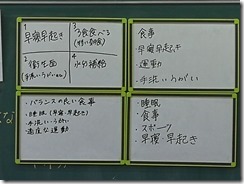 1
早寝早起き
3
3食食べる
(特に朝食)
2
衛生面
(手洗い・うがい・etc)
4
水分補給
食事
早寝早起き
運動
手洗いうがい
・バランスの良い食事
・睡眠(早寝・早起き)
・手洗い・うがい
・適度な運動
・睡眠
・食事
・スポーツ
・早寝・早起き